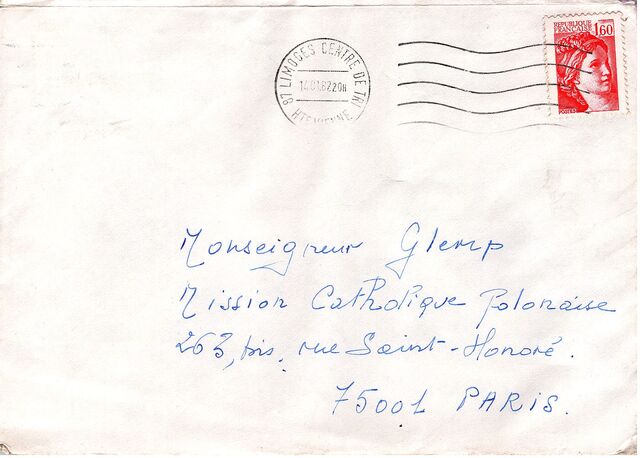 REPUBLIQUE
FRANCAISE
1,60
POSTES
87 LIMOGES CENTRE DE TRI
14.01.82 20H
HTE VIENNE
Monseigneur Glemp
Mission Catholique Polonaise
263, bis, rue Saint-Honoré.
75001 PARIS.